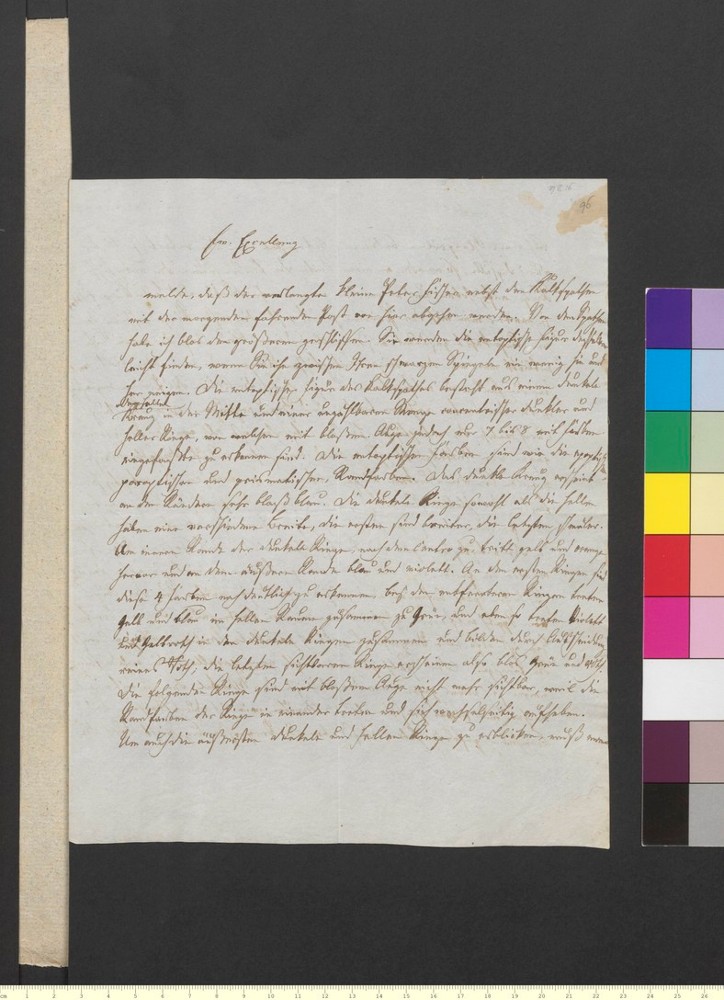 96
Ew. Excellenz
melde, daß der verlangte kleine Heber nebst den Kalkspathen
mit der morgenden fahrenden Post von hier abgehen werden. Von den Spathen
habe ich blos den größeren geschliffen. Sie werden die entoptische Figur desselben
leicht finden, wenn Sie ihn zwischen Ihren schwarzen Spiegeln ein wenig hin und
her neigen. Die entoptische Figur des Kalkspathes besteht aus einem dunkeln
Kreuz in der Mitte und einer unzählbaren Menge concentrischer dunkler und
heller Ringe, von welchen mit bloßem Auge jedoch nur 7 bis 8 mit Farben
eingefaßte zu erkennen sind. Die entoptischen Farben sind wie die
paroptischen und prismatischen, Randfarben. Das dunkle Kreuz erscheint
an den Rändern sehr blaß blau. Die dunkeln Ringe sowohl als die hellen
haben eine verschiedene Breite, die ersten sind breiter, die letzten schmäler.
Am innern Rande der dunkeln Ringe, nach dem Centro zu tritt gelb und orange
hervor und an dem äußern Rande blau und violett. An den ersten Ringen sind
diese 4 Farben noch deutlich zu erkennen, bey den entfernteren Ringen treten
Gelb und blau im hellen Raum zusammen zu Grün, und eben so treten Violett
und Gelbroth in den dunkeln Ringen zusammen und bilden durch
reines Roth, die letzten sichtbaren Ringe erscheinen also blos Grün und Roth.
Die folgenden Ringe sind mit bloßem Auge nicht mehr sichtbar, weil die
Randfarben der Ringe in einander treten und sich wechselseitig aufheben.
Um auch die äußersten dunkeln und hellen Ringe zu erblicken, muß man